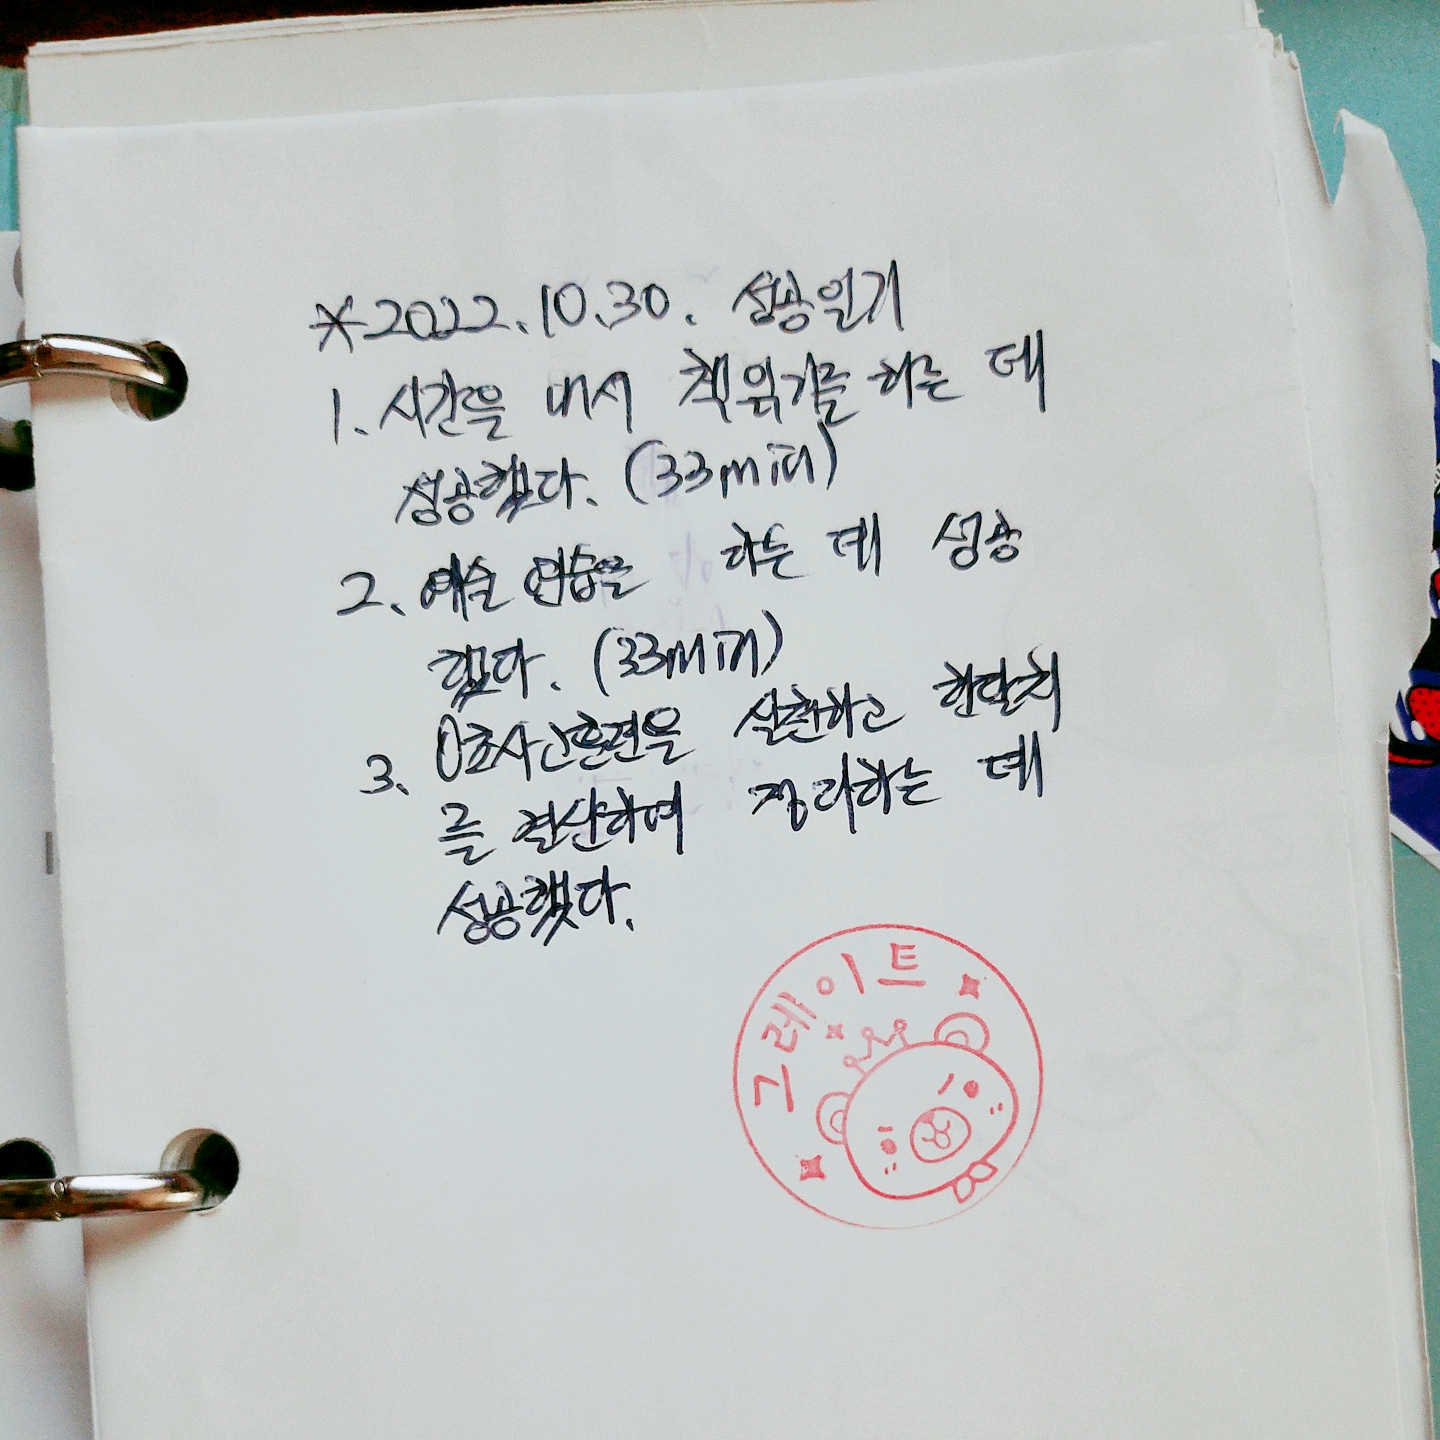 ※2022.10.30. 성공일기
1. 시간을 내서 책읽기를 하는 데
성공했다. (33min)
2. 예술 연습을 하는 데 성공
했다. (33min)
3. 0초사고훈련을 실천하고 한단위
를 결산하여 정리하는 데
성공했다.
그레이트